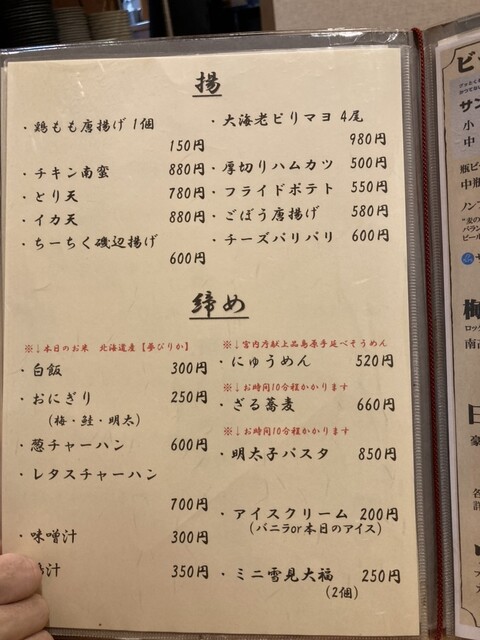 揚
・鶏もも唐揚げ 1個
150円
・チキン南蛮 880円
・とり天 780円
・イカ天 880円
・ちーちく磯辺揚げ
600円
・大海老ピリマヨ 4尾
980円
・厚切りハムカツ 500円
・フライドポテト 550円
・ごぼう唐揚げ 580円
・チーズパリパリ 600円
締め
※↓本日のお米 北海道産【夢ぴりか】
・白飯 300円
・おにぎり 250円
(梅・鮭・明太)
・葱チャーハン 600円
・レタスチャーハン
700円
・味噌汁 300円
汁 350円
※↓宮内庁献上品島原手延べそうめん
・にゅうめん 520円
※↓お時間10分程かかります
・ざる蕎麦 660円
※↓お時間10分程かかります
・明太子パスタ 850円
・アイスクリーム 200円
(バニラor本日のアイス)
・ミニ雪見大福 250円
(2個)
ビ
サン
小
中
瓶ビ
中瓶
ノン
梅
南